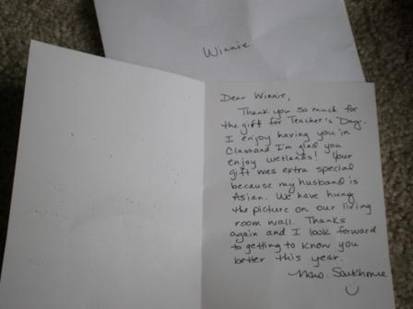 Winnie
Dear Winnie,
Thank you so much for
the gift for Teacher's Day.
I enjoy having you in
Class and I'm glad you
enjoy wetlands! Your
gift was extra special
because my husband is
Asian. We have hung
the picture on our living
room wall. Thanks
again and I look forward
to getting to know you
better this year.